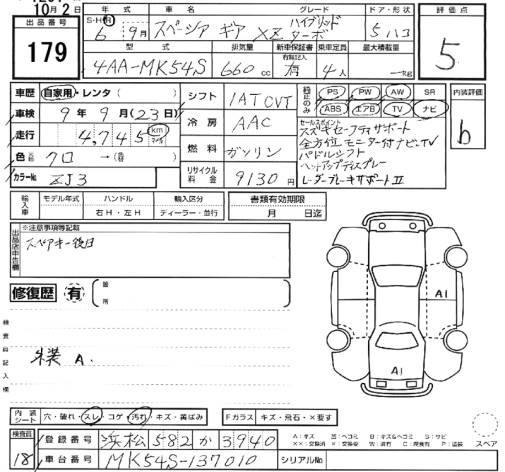 10月2日 年式 車名 グレード ドア・形状 評価点
出品番号 S・H・R 6年 9月 スペーシア ギア ハイブリッド XZ ターボ 5 ハコ
179 型式 排気量 新車保証書 乗車定員 最大積載量 5
4AA-MK54S 660cc 有 4人
車歴 自家用・レンタ( ) シフト 1AT CVT 純正のみ PS PW AW SR 内装評価
ABS エアB TV ナビ
車検 9年 9月(23日) 冷房 AAC セールスポイント b
スズキセーフティサポート
走行 4,745 km 全方位モニター付ナビ、TV
燃料 ガソリン パドルシフト
色 クロ→( ) ヘッドアップディスプレー
カラーNo ZJ3 リサイクル料金 9130円 レーダーブレーキサポートⅡ
輸入車 モデル年式 ハンドル 輸入区分 書類有効期限
右H・左H ディーラー・並行 月 日迄
出品店申告欄 ※注意事項等記載
スペアキー後日
修復歴 有 箇所
A1
検査員記入欄
A.
A1
内装シート 穴・破れ・スレ・コゲ・汚れ・キズ・黄ばみ Fガラス キズ・飛石・×要す
スペア
検査員 登録番号 浜松 582 か 3940
A:キズ
18 車台番号 MK54S-137010 シリアルNo